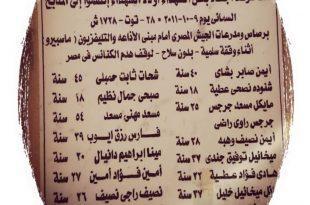 السمائى يوم ٩-١٠-٢٠١١ - ٢٨ توت - ١٧٢٨ ش
برصاص ومدرعات الجيش المصرى أمام مبنى الأذاعه والتليفزيون (ماسبيرو)
أثناء وقفة سلمية - بدون سلاح - لوقف هدم الكنائس فى مصر
أيمن صابر بشاى ٢٠ سنة شحات ثابت ٤٥ سنة
شنوده نصحى عطية ١٨ سنة صبحى جمال نظيم ١٨ سنة
مايكل مسعد جرجس ٢٥ سنة مسعد مهنى مسعد ٥٤ سنة
جرجس راوى راضى فارس رزق ايوب ٣٩ سنة
أيمن نصيف وهبه ٢٨ سنة مينا ابراهيم دانيال ٢٠ سنة
ميخائيل توفيق جندى ٣٠ سنة أيمن فؤاد أمين ٢٧ سنة
هادى فؤاد عطية ٢٢ سنة نصيف راجى نصيف ٢٦ سنة
ميخائيل خليل ٣٤ سنة